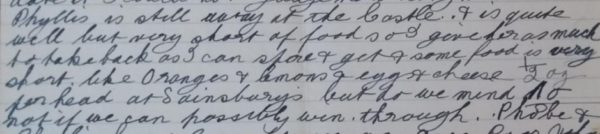 Phyllis is still away at the Castle. & is quite
well but very short of food so I give her as much
to take back as I can spare & get & some food is very
short, like Oranges & lemons & egg & cheese ½ oz
per head at Sainsburys but do we mind No
not if we can possibly win through. Phoebe &